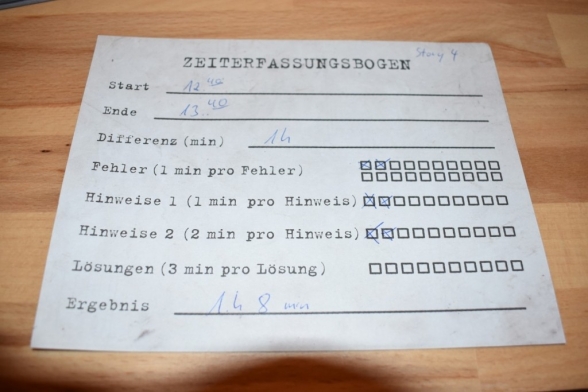 Story 4
ZEITERFASSUNGSBOGEN
Start 12 40
Ende 13 40
Differenz (min) 1h
Fehler (1 min pro Fehler)
Hinweise 1 (1 min pro Hinweis)
Hinweise 2 (2 min pro Hinweis)
Lösungen (3 min pro Lösung)
Ergebnis 1h 8 min